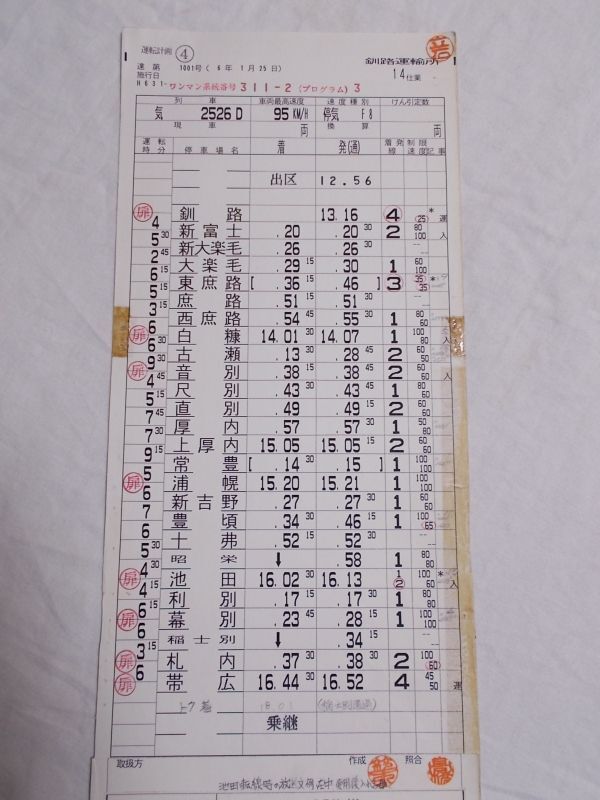 運転計画 ④
達第 1001号( 6 年 1月 25日)
施行日
H631 ワンマン系統番号 311-2 (プログラム) 3
14仕業
列 車 車両最高速度 速度種別 けん引定数
気 2526D 95KM/H 停気 F8
現 車 両 換 算 両
運転時分 停車場名 着 発(通) 着発線 制限速度 記事
出区 12.56
扉 釧路 13.16 4 25 * 運
4 新富士 .20 .20 30 2 80 100 入
5 45 新大楽毛 .26 .26 30
2 45 大楽毛 .29 15 .30 1 60 100
6 15 東庶路 [ .36 15 .46 ] 3 35 35 *
5 庶路 .51 15 .51 30
3 西庶路 .54 45 .55 30 1 80 60
扉 6 白糠 14.01 30 14.07 1 100 80 入
6 30 古瀬 .13 30 .28 45 2 60 50
扉 9 30 音別 .38 15 .38 45 2 60 60 入
4 45 尺別 .43 30 .43 45 1 80 60
5 15 直別 .49 .49 15 2 60 60
7 45 厚内 .57 .57 30 1 50 80
7 30 上厚内 15.05 15.05 15 2 80 60
9 15 常豊 [ .14 30 .15 ] 1 100 100
扉 5 浦幌 15.20 15.21 1 100 100
6 新吉野 .27 .27 30 1 60 60
7 豊頃 .34 30 .46 15 1 100 65
6 十弗 .52 15 .52 30
5 30 昭栄 ↓ .58 1 80 80
扉 4 30 池田 16.02 30 16.13 1 ② 100 60 * 入
4 15 利別 .17 15 .17 30 1 80 80
扉 6 15 幕別 .23 45 .28 15 1 100 100
6 稲士別 ↓ .34 15
扉 3 15 札内 .37 30 .38 30 2 100 60
扉 6 帯広 16.44 30 16.52 4 45 50 運
18.01 (稲士別通過)
乗継
取扱方 作成 照合